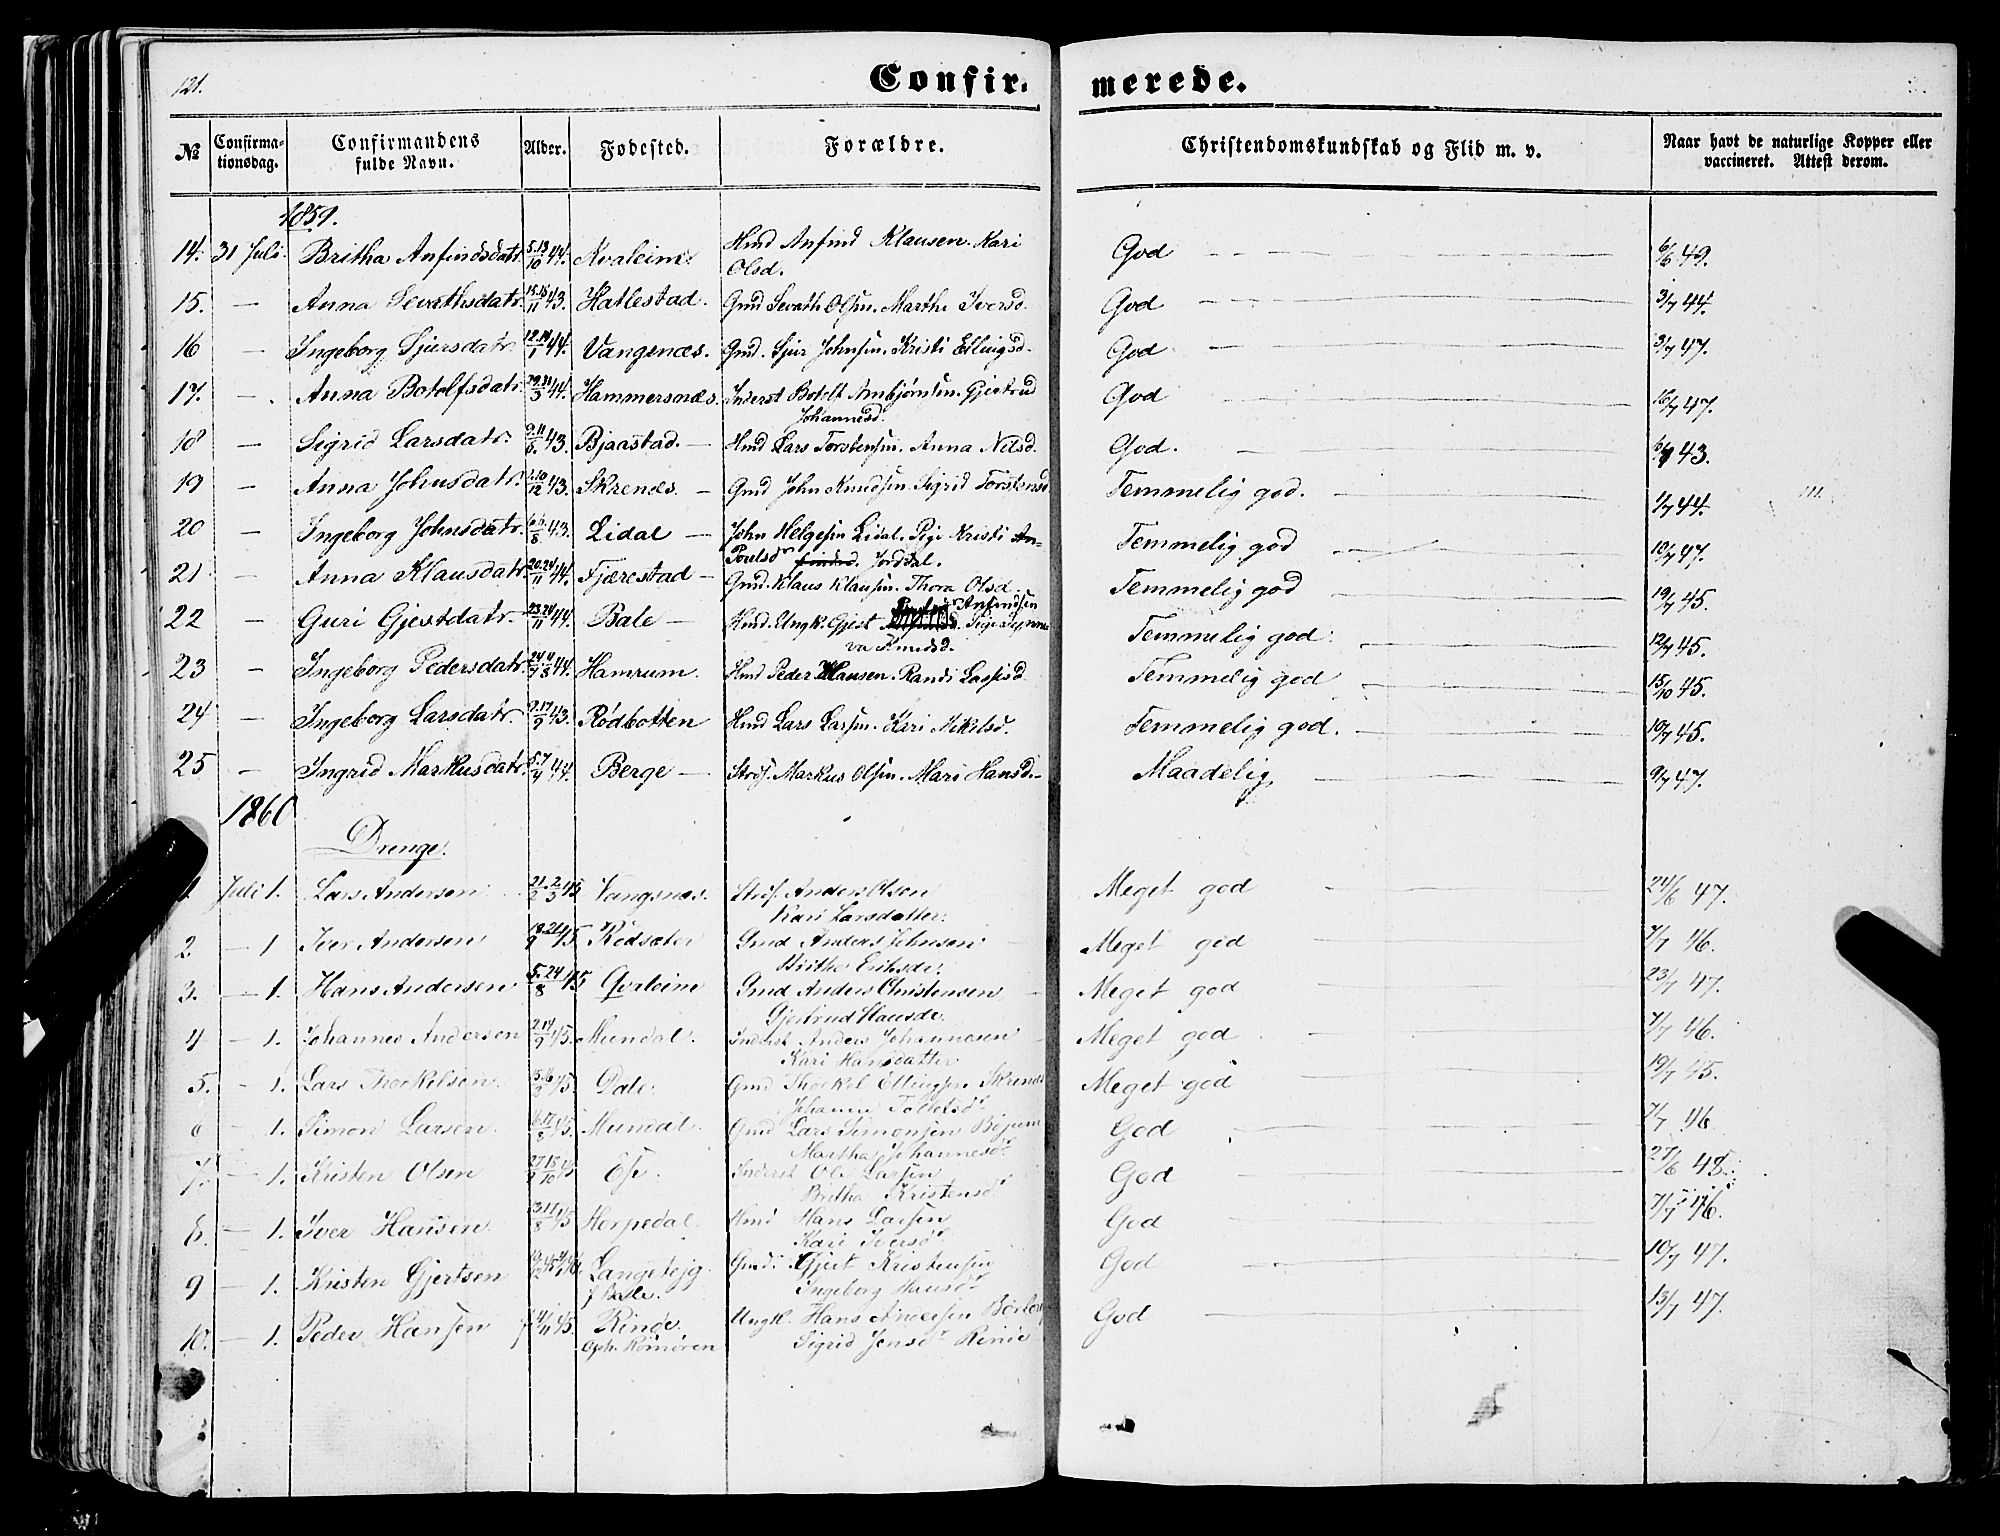 121.
Confir- merede.
№ Confirma-tionsdag. Confirmandens fulde Navn. Alder. Fødested. Forældre. Christendomskundskab og Flid m. v. Naar havt de naturlige Kopper eller vaccineret. Attest derom.
1859.
14. 31 Juli. Britha Anfindsdatr. 5.13/10 44. Kvaleim. Hmd Anfind Klausen. Kari God 6/6 49.
Olsd.
15. — Anna Sevathsdatr. 11 43. Hatlestad. Gmd Sevath Olsen. Martha Iversd. God 3/7 44.
16 — Ingeborg Sjursdatr. 12.14/1 44. Vangsnæs. Gmd. Sjur Johnsen. Kristi Ellingsd. God 3/7 47.
17. — Anna Botolfsdatr. 29.31/3 44. Hammersnæs. Inderst Botolf Ambjørnsen. Gjertrud God 16/7 47.
Johannesd.
18 — Sigrid Larsdatr. 9.11/6 43. Bjaastad. — Hmd Lars Torstensen. Anna Nilsd. God. 43.
19 — Anna Johnsdatr. 12 43. Skrenæs. — Gmd John Knudsen Sigrid Torstensd Temmelig god. 1/7 44.
20 — Ingeborg Johnsdatr. 8 43. Lidal — John Helgesen Lidal. Pige Kristi An- Temmelig god 10/7 47.
Poulsdr findsd. Jordal.
21 — Anna Klausdatr. 20.24/11 44. Fjærestad — Gmd. Klaus Klausen. Thora Olsd. Temmelig god 19/7 45.
22 — Guri Gjestdatr. 23.24/11 44. Bale — Hmd. Ungk. Gjest Anfindsen Pige Temmelig god. 12/7 45.
va Knudsd.
23 — Ingeborg Pedersdatr. 44. Hamrum. Hmd Peder Hansen. Randi Lassesd Temmelig god 15/10 45.
24 — Ingeborg Larsdatr. 9.17/9 43. Rødbotten Hmd Lars Larsen. Kari Mikelsd. Temmelig god. 10/7 45.
25 — Ingrid Markusdatr. 5.7/4 44. Berge — Strds. Markus Olsen. Mari Hansd. Maadelig 9/7 47.
1860
Drenge.
1. Juli 1. Lars Andersen 21/2 2/3 45 Vangsnæs. Strds. Anders Olsen Meget god 24/6 47.
Kari Larsdatter.
2. — 1 Iver Andersen 45 Rødsæter Gmd Anders Johnsen. Meget god 7/7 46.
Britha Eriksdr.
3. — 1. Hans Andersen 5.24/8 45 Qvaleim Gmd Anders Christensen Meget god 23/7 47.
Gjertrud Hansdr.
4 — 1. Johannes Andersen 2.14/9 45. Mundal. Inderst Anders Johannesen Meget god 7/7 46.
Kari Hansdatter
5. — 1. Lars Thorkelsen 2 45. Dale. Gmd Thorkel Ellingsen Skrenes Meget god 19/7 45.
Johanne Tollefsdr
1. Simon Larsen. 8 45. Mundal. Gmd Lars Simonsen Bøjum God 7/7 46.
Martha Johannesdr
7. — 1. Kristen Olsen 45 Ese. Inderst Ole Larsen God 27/6 48.
Britha Kristensdr
8. — 1. Iver Hansen 8 45 Horpedal. Hmd Hans Larsen God 7/7 46.
Kari Iversdr
9 — 1. Kristen Gjertsen Langetejg Gmd. Gjert Kristensen God 10/7 47.
f. Bale. Ingeborg Hansdr
10. — 1. Peder Hansen 11 45. Rinde. Ungk. Hans Andersen God 13/7 47.
Oph. Rømøren Sigrid Jensdr Rinde